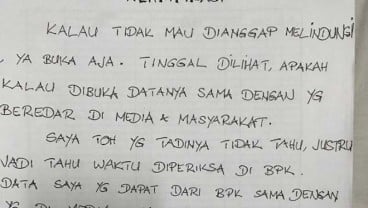 KALAU TIDAK MAU DIANGGAP MELINDUNGI
YA BUKA AJA. TINGGAL DILIHAT, APAKAH
KALAU DIBUKA DATANYA SAMA DENGAN YG
BEREDAR DI MEDIA & MASYARAKAT.
SAYA TOH YG TADINYA TIDAK TAHU, JUSTRU
JADI TAHU WAKTU DIPERIKSA DI BPK.
DATA SAYA YG DAPAT DARI BPK SAMA DENGAN
YG DI